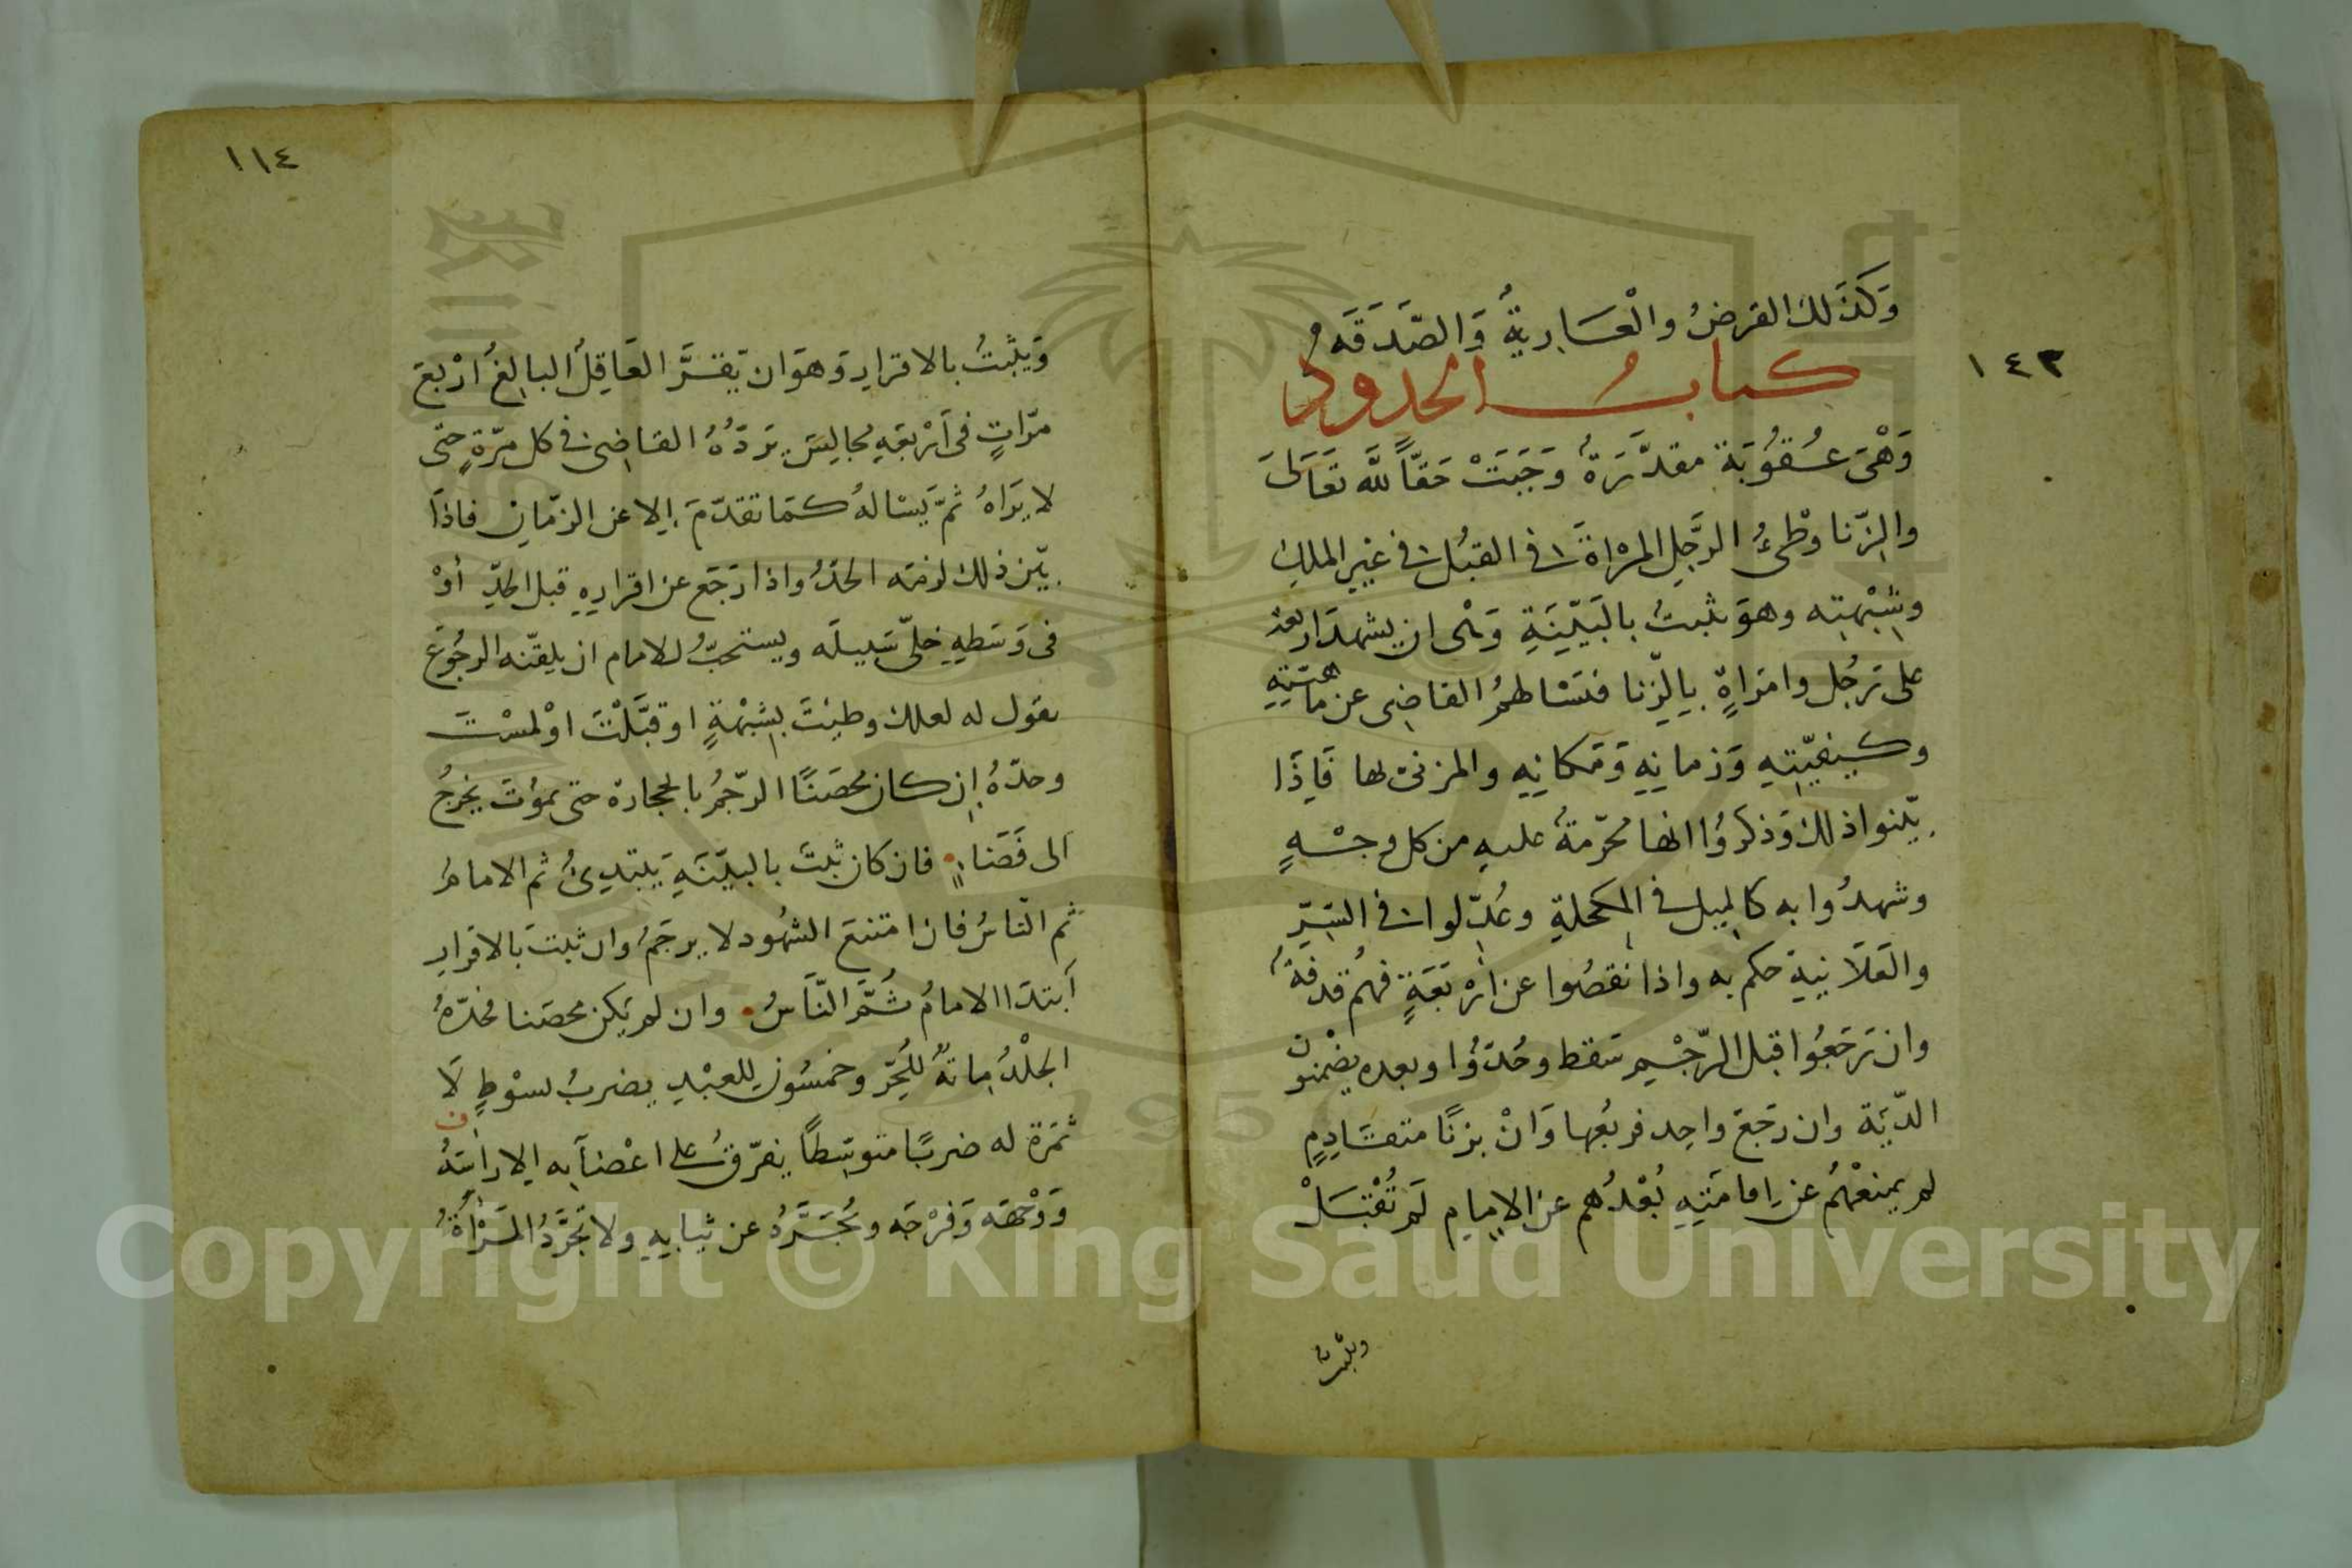 ١٤٣
وَكَذَلك القرضُ والْعَارِيةُ وَالصَّدَقَةُ
كتابُ الحدود
وَهْىَ عُقُوُبَة مقدَّرَةٌ وَجَبَتْ حَقّاً للَّه تَعَالَى
والزّنا وطْىُ الرَّجلِ المرْاةَ فى القبُل فى غيرِ الملكِ
وشِبْهتِه وهوَ يثبتُ بالبَيّنَةِ وَهْى ان يشهدَ اربعة
على رَجُل وامرَاةٍ بِالزّنا فيَسْالهمُ القاضِى عن ماهيّتِهِ
وكيفيّتِهِ وَزمانِهِ وَمَكانِهِ والمزنىّ لها فَاِذَا
بيّنوا ذلك وَذكرُوُا انها محرّمةٌ عليهِ من كل وجْهٍ
وشهدُوا به كالميل فى المكحلةِ وعُدّلوا فى السّرّ
والعَلَانيةِ حكم به واذا نقصُوا عن ارْبَعَةٍ فهُم قذفةٌ
وان رَجَعُوا قبل الرّجْمِ سَقط وحُدّوُا وبعده يضْمنون
الدّيَة وان رَجَعَ واحِد فربُعُها وَانْ بزنًا متقَادِمٍ
لم يمنعْهُم عن اِقامَتِهِ بُعْدُهم عن الاِمامِ لَم تُقْبَلْ
ويثبتُ
١١٤
وَيثبتُ بالاقرارِ وَهوَ ان يُقرَّ العَاقِلُ البالِغُ ارْبعَ
مرّاتٍ فى اَرْبعَةِ مجالِسَ يَردّهُ القاضِى فى كل مرّةٍ حتى
لا يَراهُ ثمَّ يَسْالهُ كمَا تقدّمَ اِلا عن الزّمانِ فاذَا
بيّن ذلك لزمَه الحدُّ واذا رَجَع عن اقرارِهِ قبل الحدِّ أوْ
فى وَسَطِهِ خلّى سَبيلَه ويستحبُّ للامام ان يلقّنه الرجُوعَ
يقول له لعلك وطِئتَ بِشبْهةٍ او قبَّلْتَ اوْ لمسْتَ
وحدّهُ اِن كان محصَنًا الرّجمُ بالحجارة حتى يموُتَ يخرجُ
الى فَضَاءٍ فان كان ثبتَ بالبيّنَةِ يَبتدِئُ ثم الامامُ
ثم النّاسُ فان امتنعَ الشهُود لا يرجَمُ وان ثبتَ بالاقرارِ
اَبتدَا الامامُ ثُمَّ النَّاسُ وان لم يَكن محصَنا فحدّهُ
الجلْدُ مِائةٌ للحُرّ وخمسُون للعبْدِ يضربُ بسَوْطٍ لَا
ثمَرَة له ضربًا متوسّطاً يفرّقُ على اعْضَآئِه اِلا رأسَهُ
وَوَجْهَه وَفرْجَه ويُجَرَّدُ عن ثيابِهِ ولا تُجَرَّدُ المَرْأةُ
Copyright © King Saud University